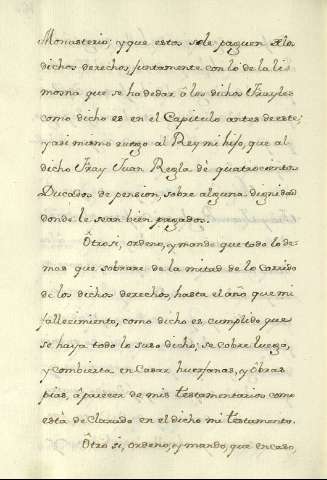 Monasterio; y que estos se le paguen de los
dichos derechos, juntamente con lo de la li
mosna que se ha de dar â los dichos Frayles
como dicho es en el Capitulo antes de este;
y asi mismo ruego al Rey mi hijo, que al
dicho Fray Juan Regla dè quatrocientos
Ducados de pension, sobre alguna dignidad
donde le sean bien pagados.
Ôtro si, ordeno, y mando que todo lo de-
mas que sobrare de la mitad de lo Corrido
de los dichos derechos, hasta el año que mi
fallecimiento, como dicho es cumplido que
se haya todo lo suso dicho; se cobre luego,
y combierta en Casar huerfanas, y ôbras
pias, â parecer de mis testamentarios como
està declarado en el dicho mi testamento.
Ôtro si, ordeno, y mando, que en caso,